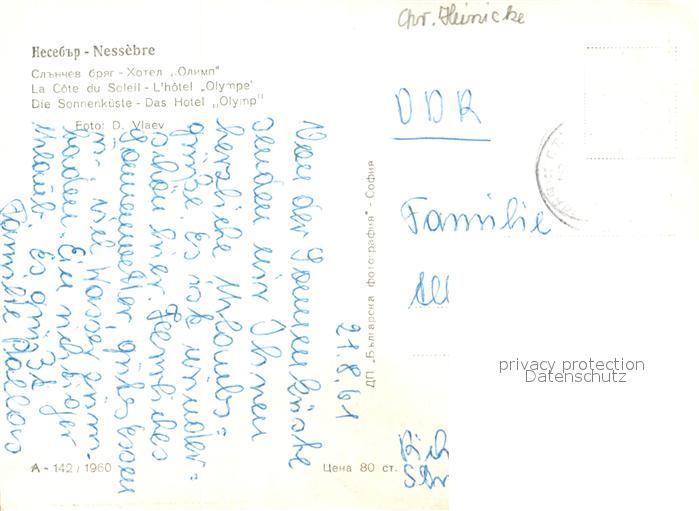 Chr. Heinicke
Несебър - Nessèbre
Слънчев бряг - Хотел „Олимп"
La Côte du Soleil - L'hôtel „Olympe"
Die Sonnenküste - Das Hotel „Olymp"
Foto: D. Vlaev
21.8.61
Von der Sonnenküste
senden wir Ihnen
herzliche Urlaubs=
grüße. Es ist wunder=
schön hier. Herrliches
Sonnenwetter, gutes Essen
u. viel Wasser zum
baden. Ein richtiger
Urlaub. Es grüßt
Familie
ДП „Българска фотография" - София
DDR
Familie
privacy protection
Datenschutz
А - 142 / 1960
Цена 80 ст.